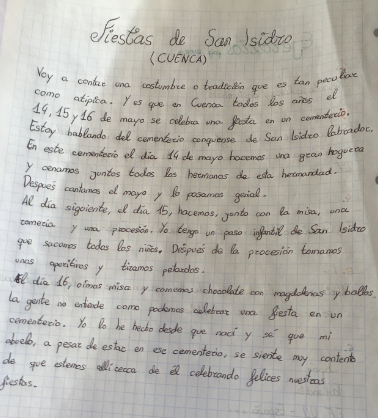 Fiestas de San Isidro
(CUENCA)
Voy a contar una costumbre o tradición que es tan peculiar
como atípica. Y es que en Cuenca todos los años el
14, 15 y 16 de mayo se celebra una fiesta en un cementerio.
Estoy hablando del cementerio conquense de San Isidro Labrador.
En este cementerio el día 14 de mayo hacemos una gran hoguera
y cenamos juntos todos los hermanos de esta hermandad.
Despues cantamos el mayo y lo pasamos genial.
Al día siguiente, el día 15, hacemos, junto con la misa, una
romería y una procesión. Yo tengo un paso infantil de San Isidro
que sacamos todos los niños. Después de la procesión tomamos
unos aperitivos y tiramos petardos.
El día 16, oimos misa y comemos chocolate con magdalenas y bollos.
la gente no entiende como podemos celebrar una fiesta en un
cementerio. Yo lo he hecho desde que nací y sé que mi
abuelo, a pesar de estar en ese cementerio, se siente muy contento
de que estemos allí cerca de él celebrando felices nuestras
fiestas.